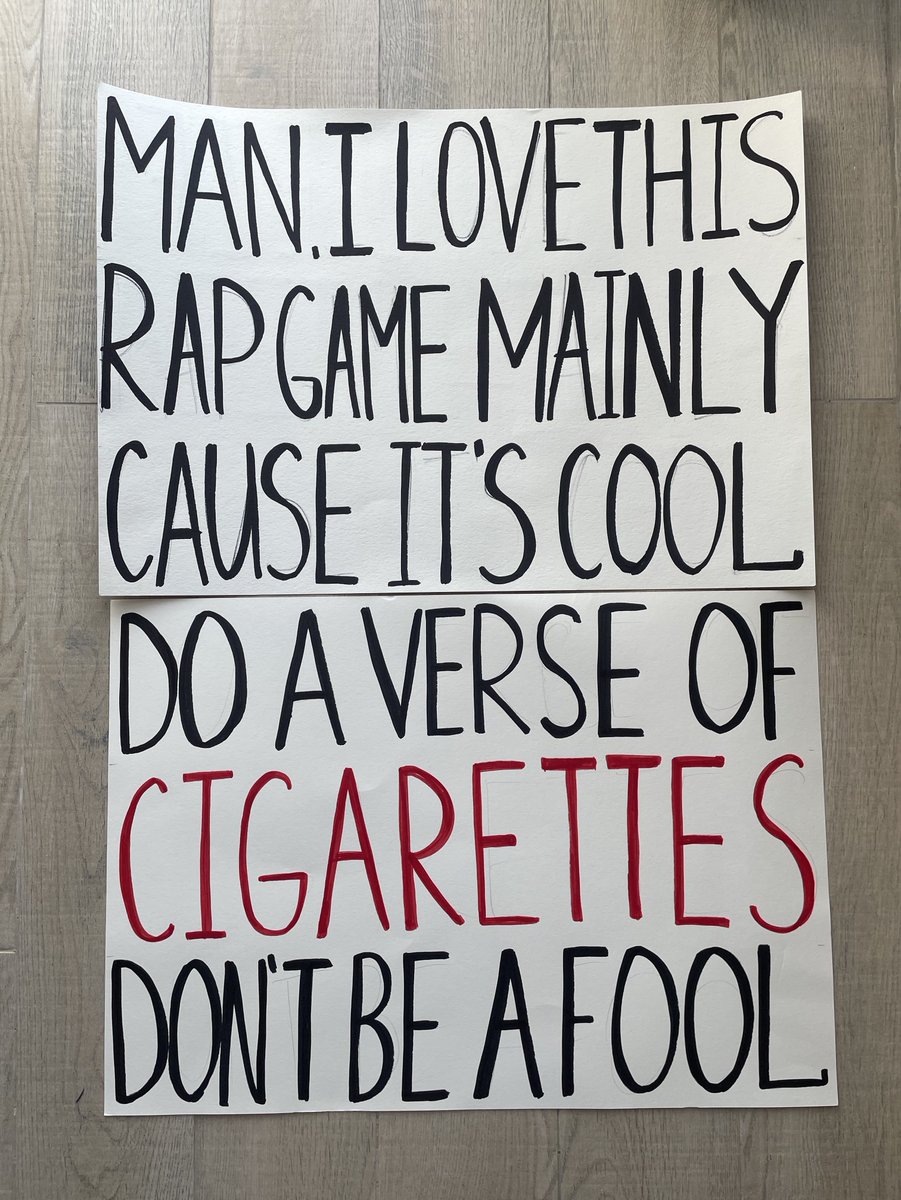 MAN, I LOVE THIS
RAP GAME MAINLY
CAUSE IT'S COOL
DO A VERSE OF
CIGARETTES
DON'T BE A FOOL